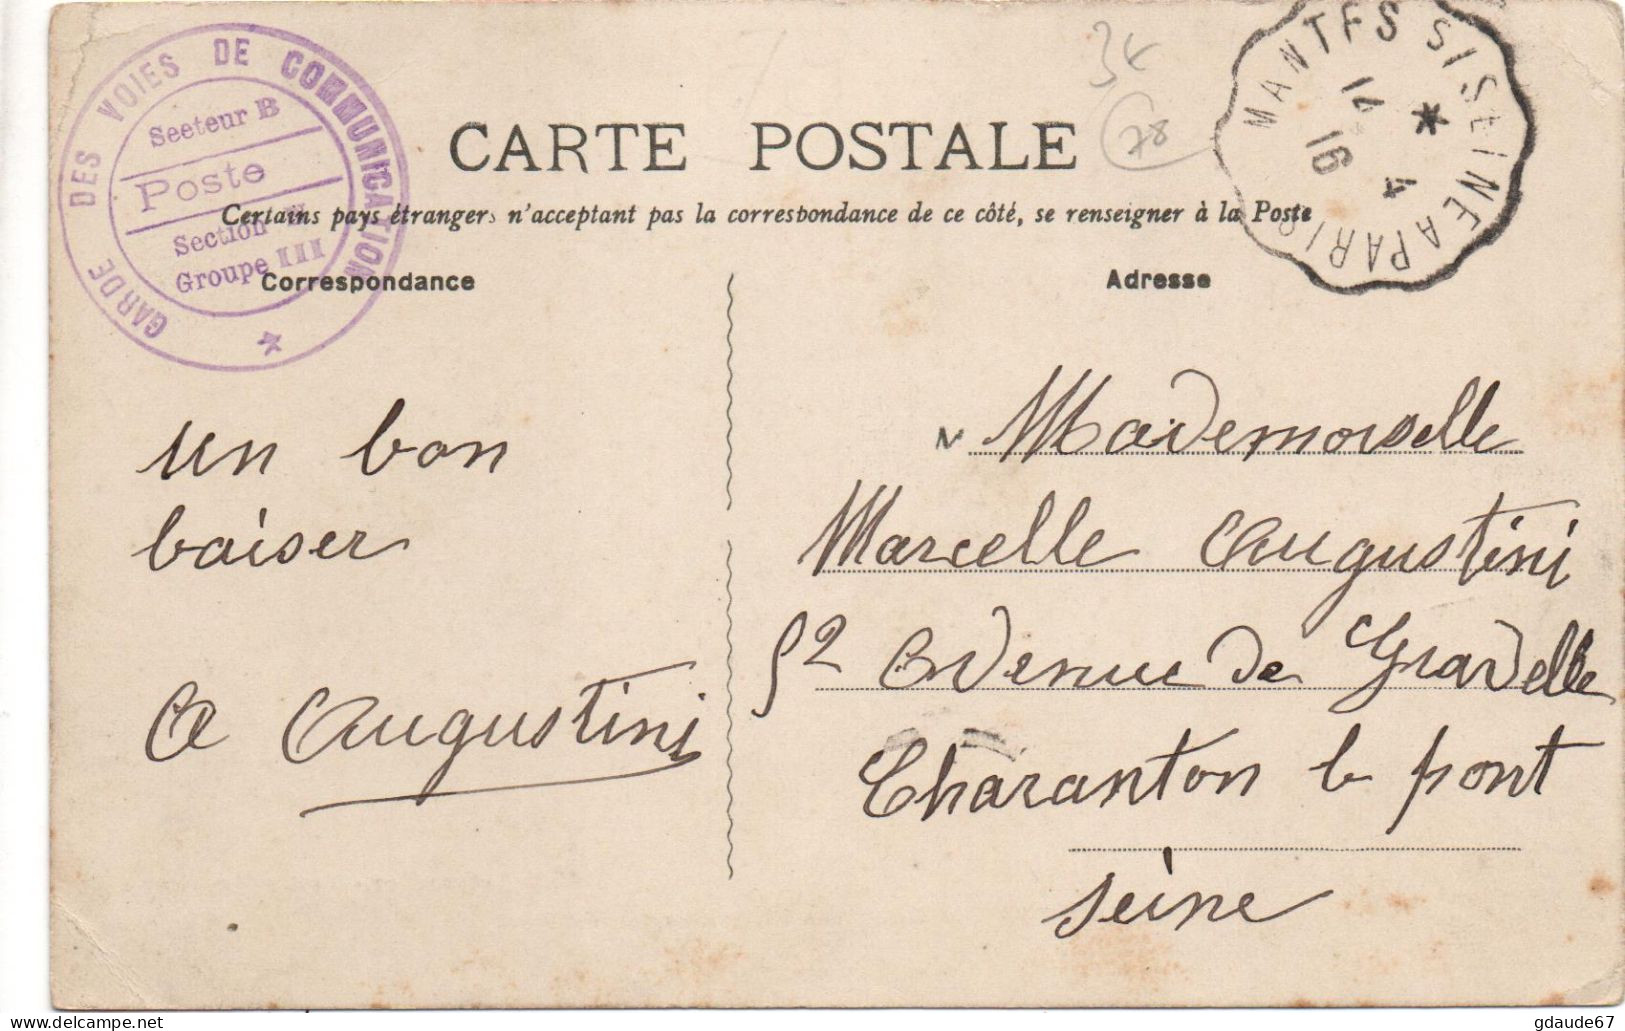 GARDE DES VOIES DE COMMUNICATION
Secteur B
Poste
Section
Groupe III
34
78
CARTE POSTALE
MANTES S/SEINE A PARIS
14 4
16
Certains pays étrangers n'acceptant pas la correspondance de ce côté, se renseigner à la Poste
Correspondance
Adresse
un bon
baiser
A Augustini
Mademoiselle
Marcelle Augustini
52 Avenue de Gravelle
Charanton le pont
seine
delcampe.net
gdaude67